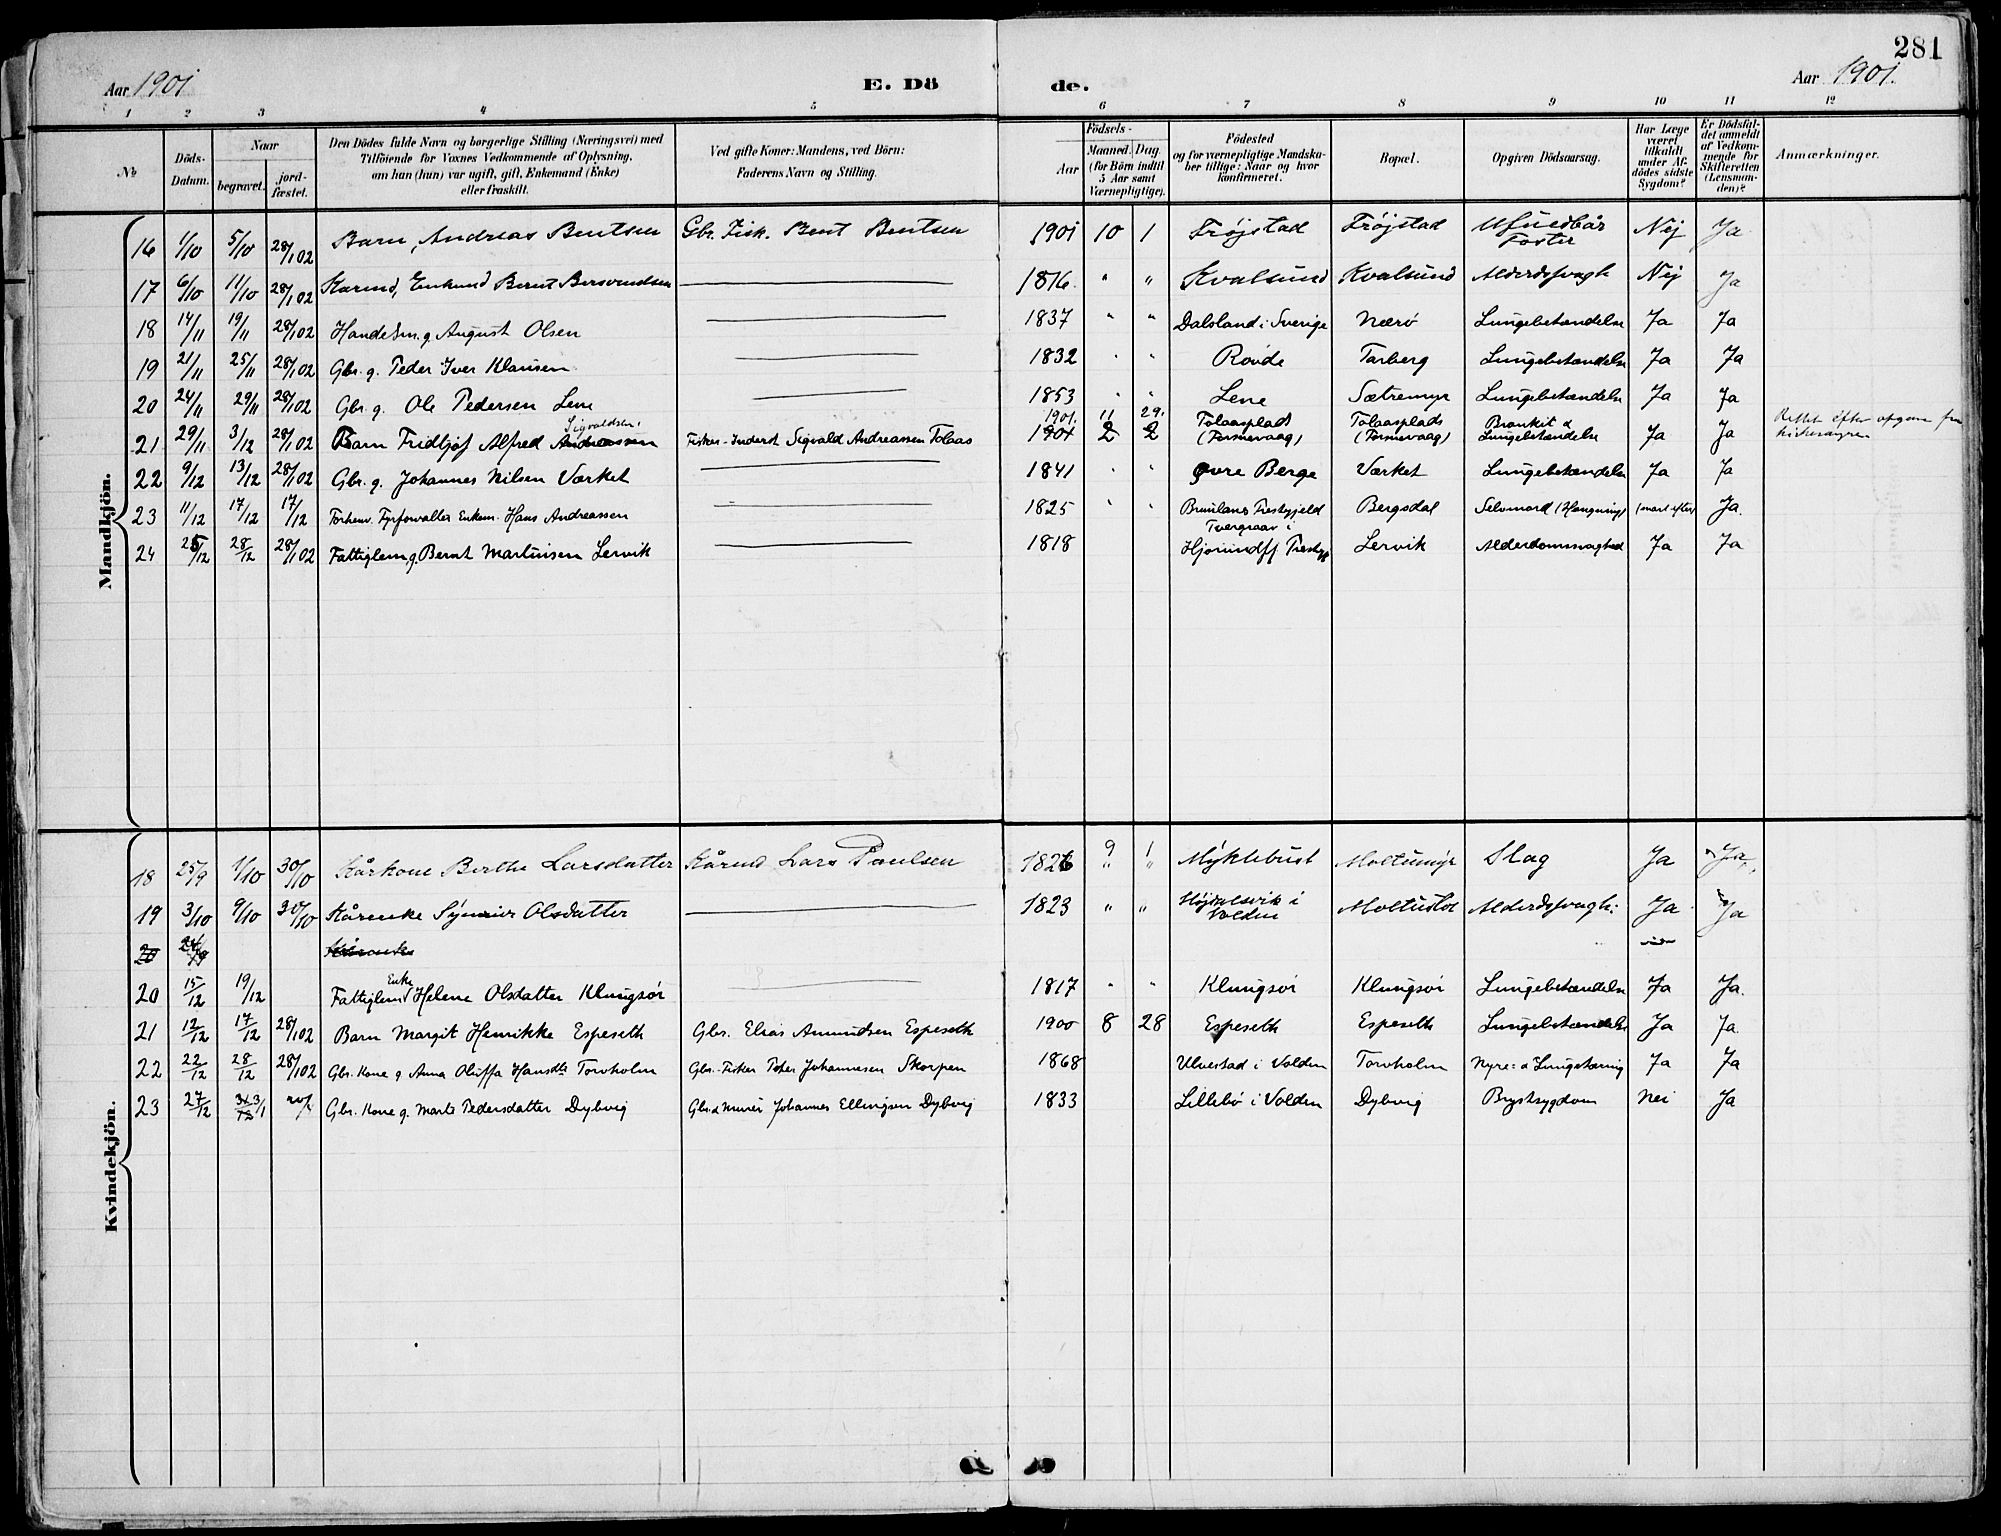 281
Aar 1901 E. Dö de. Aar 1901.
1 2 3 4 5 6 7 8 9 10 11 12
No
Döds-Datum.
Naar
begravet.
jord-fæstet.
Den Dödes fulde Navn og borgerlige Stilling (Næringsvei) med
Tilföiende for Voxnes Vedkommende af Oplysning,
om han (hun) var ugift, gift, Enkemand (Enke)
eller fraskilt.
Ved gifte Koner: Mandens, ved Börn:
Faderens Navn og Stilling.
Födsels-
Aar
Maaned. Dag
(for Börn indtil
5 Aar samt
Værnepligtige).
Födested
og for værnepligtige Mandska-
ber tillige: Naar og hvor
konfirmeret.
Bopæl.
Opgiven Dödsaarsag.
Har Læge
været
tilkaldt
under Af-
dödes sidste
Sygdom?
Er Dödsfal-
det anmeldt
af Vedkom-
mende for
Skifteretten
(Lensman-
den)?
Anmærkninger.
Mandkjön.
16 1/10 5/10 28/1 02 Barn, Andreas Bentsen Gbr. Fisk. Bent Bentsen 1901 10 1 Frøjstad Frøjstad Ufuldbår Foster Nej Ja
17 6/10 11/10 28/1 02 Karmd, Enkemd Bernt Bersvendsen 1816. " " Kvalsund Kvalsund Nej Ja
18 14/11 19/11 28/102 g. August Olsen 1837 " " Dalsland i Sverige Nærø Lungebetændelse Ja Ja
19 21/11 25/11 28/102 Gbr. g. Peder Iver Klausen 1832 " " Rovde Tarberg Lungebetændelse Ja Ja
20 24/11 29/11 28/102 Gbr. g. Ole Pedersen Lene 1853 " " Lene Sætremyr Lungebetændelse Ja Ja
Sigvaldsen 1901. 11 29. Tolaasplads Tolaasplads Bronkit &
21 29/11 3/12 28/102 Barn Fridtjof Alfred Andreassen Fisker-Inderst Sigvald Andreassen Tolaas 1901 2 2 Lungebetændelse Ja Ja Rettet efter opgave fra
22 9/12 13/12 28/102 Gbr. g. Johannes Nilsen Værket 1841 " " Øvre Berge Værket Lungebetændelse Ja Ja
23 11/12 17/12 17/12 Forhenv. Fyrforvalter Enkem. Hans Andreassen 1825 " " Brunlanes Præstegjeld Bergsdal Selvmord (Hængning) Ja.
24 25/12 28/12 28/102 Fattiglem, g. Bernt Martinisen Lervik 1818 Hjörundfj Præstegj Lervik Alderdomssvaghed Ja Ja
Kvindekjön.
18 25/9 1/10 30/10 Kårkone Berthe Larsdatter Kårmd Lars Paulsen 1826 9 1 Myklebust Moltumyr Slag Ja Ja
19 3/10 9/10 30/10 Kårenke Synnøve Olsdatter 1823 " " Højdalsvik i Volden Ja Ja
20 Kårenke
20 15/12 19/12 Fattiglem Enke Helene Olsdatter Klungsör 1817 " " Klungsör Klungsör Lungebetændelse Ja Ja.
21 12/12 17/12 28/102 Barn Margit Henrikke Espeseth Gbr. Elias Amundsen Espeseth 1900 8 28 Espeseth Espeseth Lungebetændelse Ja Ja
22 22/12 28/12 28/102 Gbr. Kone g Anna Oluffa Hansdtr Torvholm Gbr.-Fisker Peter Johannesen Skorpen 1868 Ulvestad i Volden Torvholm Nyre- & Lungetæring Ja Ja
23 27/12 3/1 Gbr. Kone g. Marte Pedersdatter Dybvig Gbr. & Murer Johannes Ellingsen Dybvig 1833 Lillebö i Volden Dybvig Brystsygdom Nei Ja